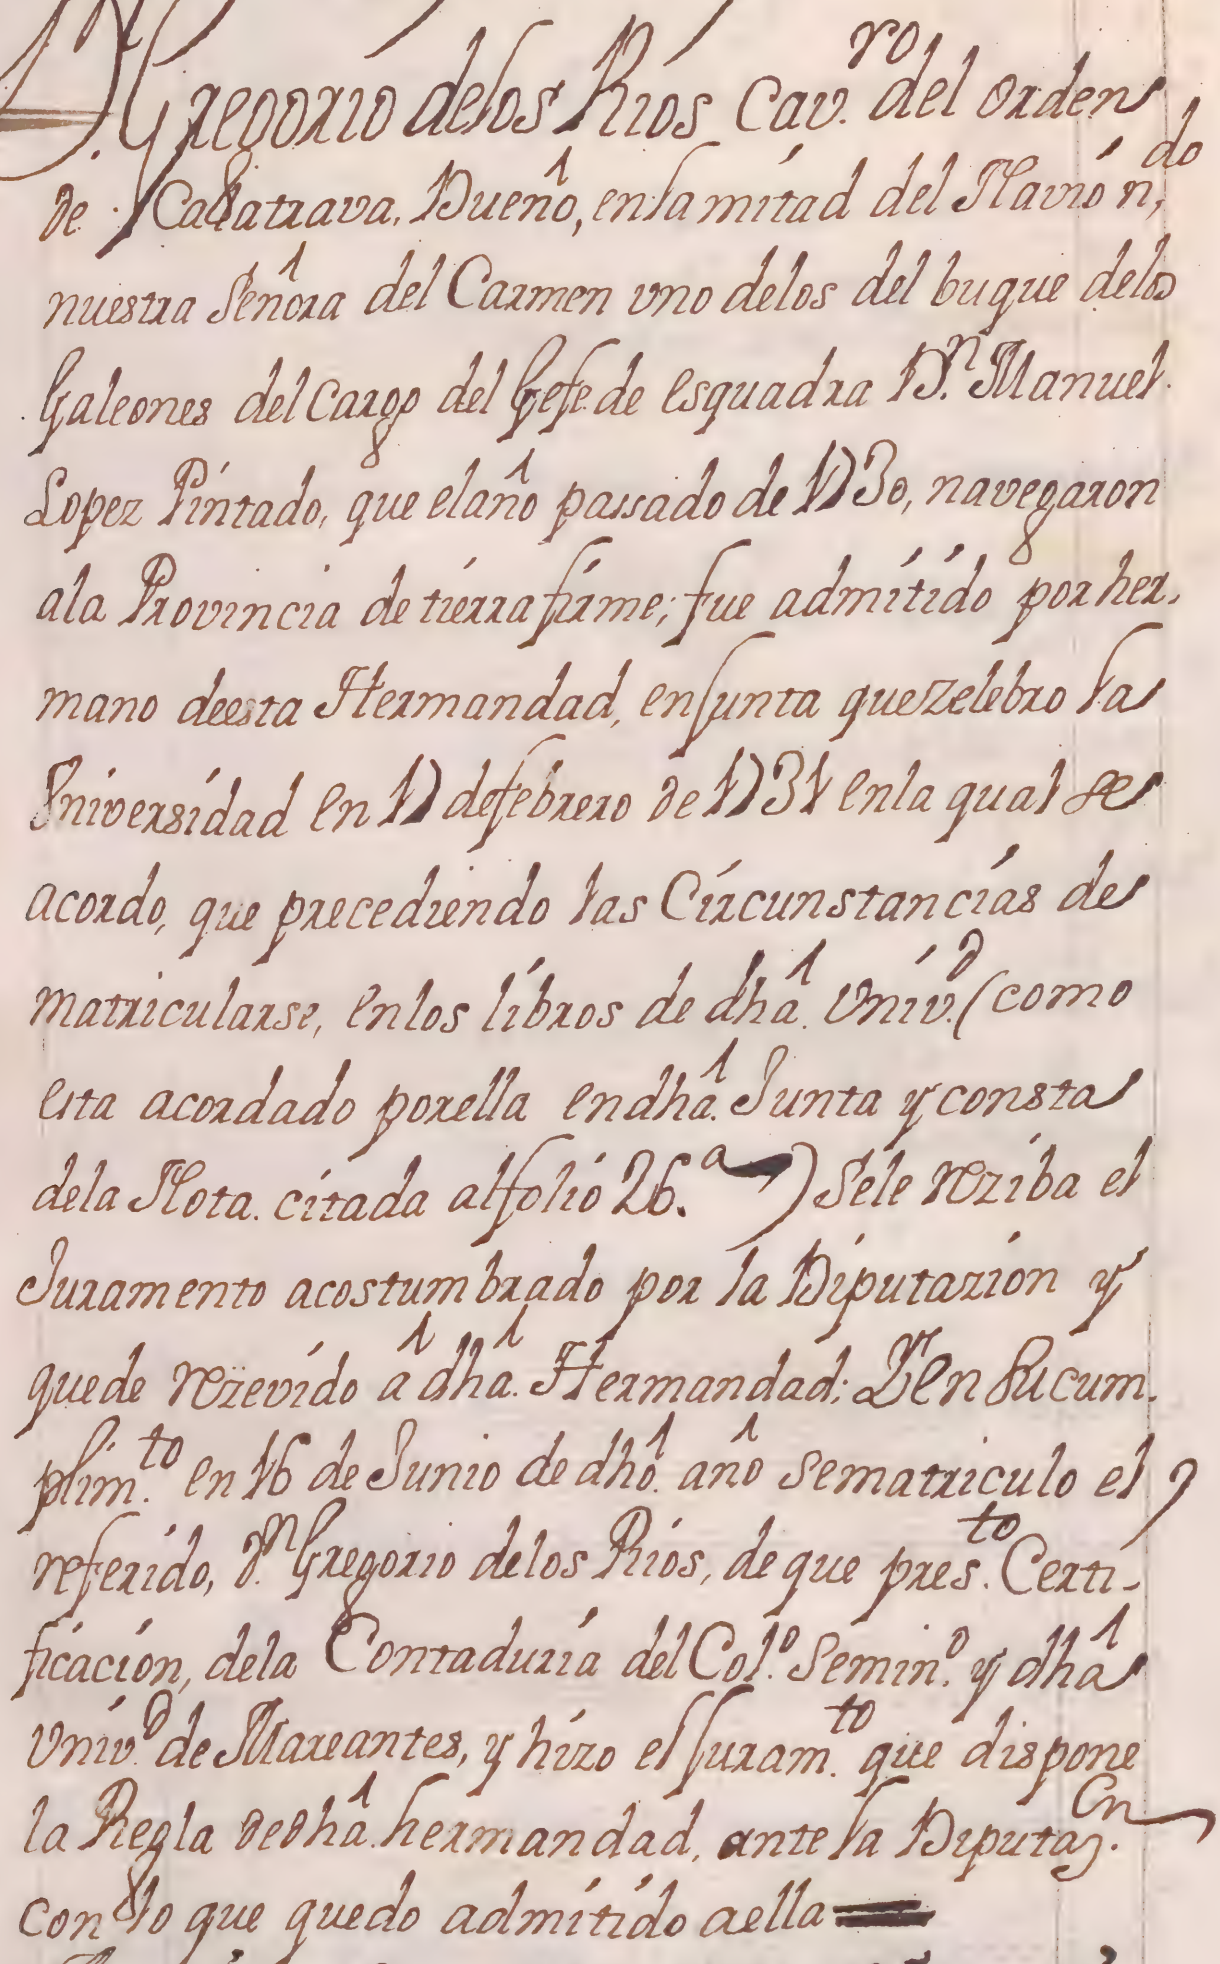 D. Gregorio delos Rios Cav.ro del orden
de Calatrava, Dueño, en la mitad del Navio n,do
nuestra Señora del Carmen uno delos del buque delos
Galeones del Cargo del Gefe de esquadra Dn. Manuel
Lopez Pintado, que el año passado de 1730, navegaron
ala Provincia de tierra firme; fue admitido por her-
mano deesta Hermandad, en Junta que zelebro la
Universidad en 17 de febrero de 1731 enla qual se
acordo, que precediendo las Circunstancias de
matricularse, enlos libros de dha. Univ.d (como
esta acordado porella endha. Junta y consta
dela Nota. citada alfolio 26.a) Sele reziba el
Juramento acostumbrado por la Diputazion y
quede rezevido â dha. Hermandad: Y en su cum-
plim.to en 16 de Junio de dho. año sematriculo el
referido, Dn. Gregorio delos Rios, de que pres.to Certi-
ficacion, dela Contaduria del Col.o Semin.o y dha
Univ.d de Mareantes, y hizo el Juram.to que dispone
la Regla dedha. hermandad, ante la Diputaz.on
con lo que quedo admitido aella